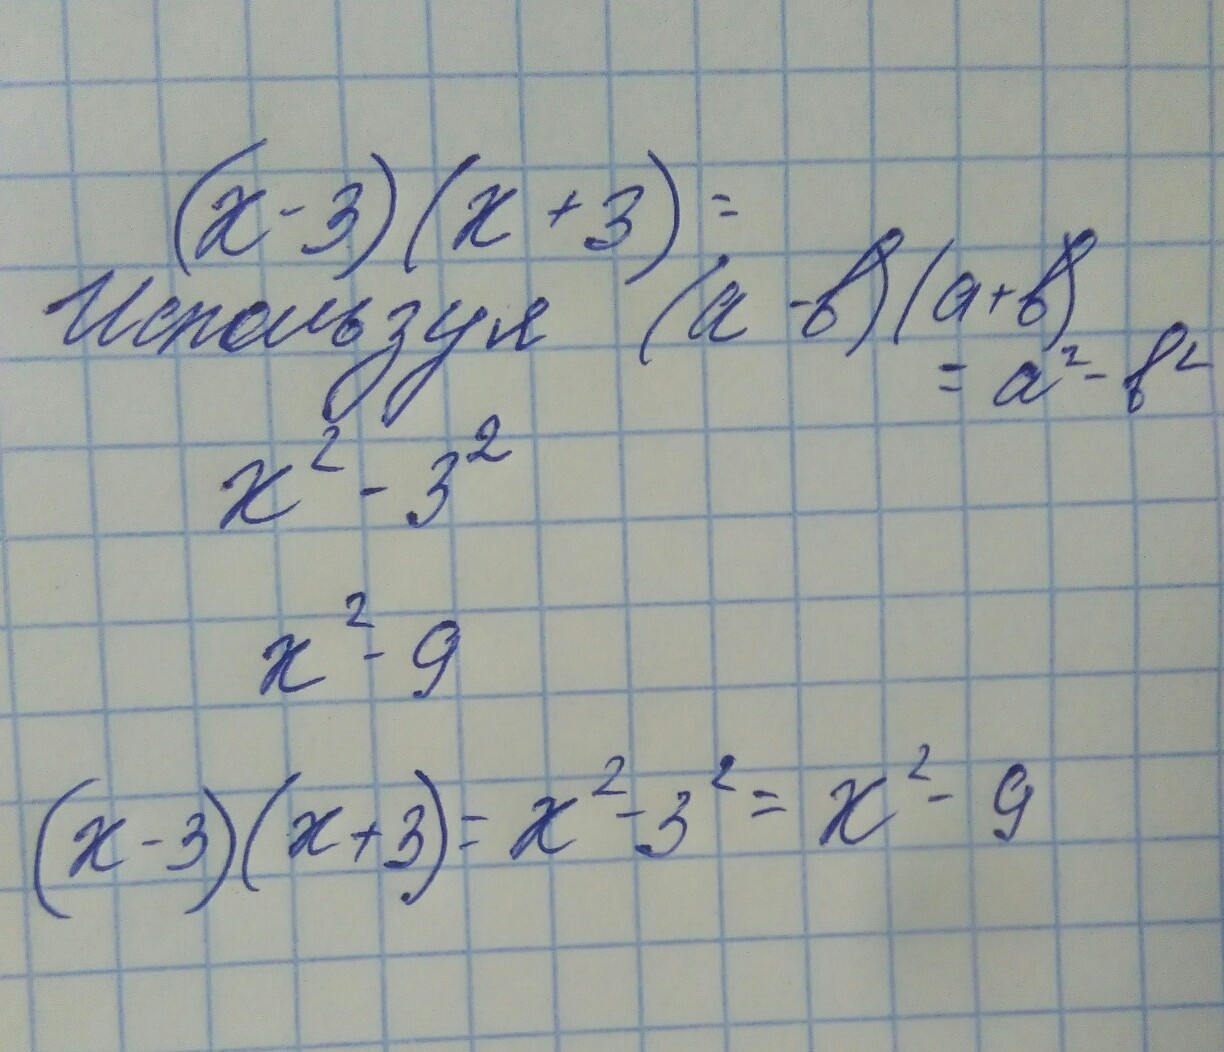 (x-3)(x+3)=
Используя (a-b)(a+b)
= a²-b²
x²-3²
x²-9
(x-3)(x+3)=x²-3²=x²-9